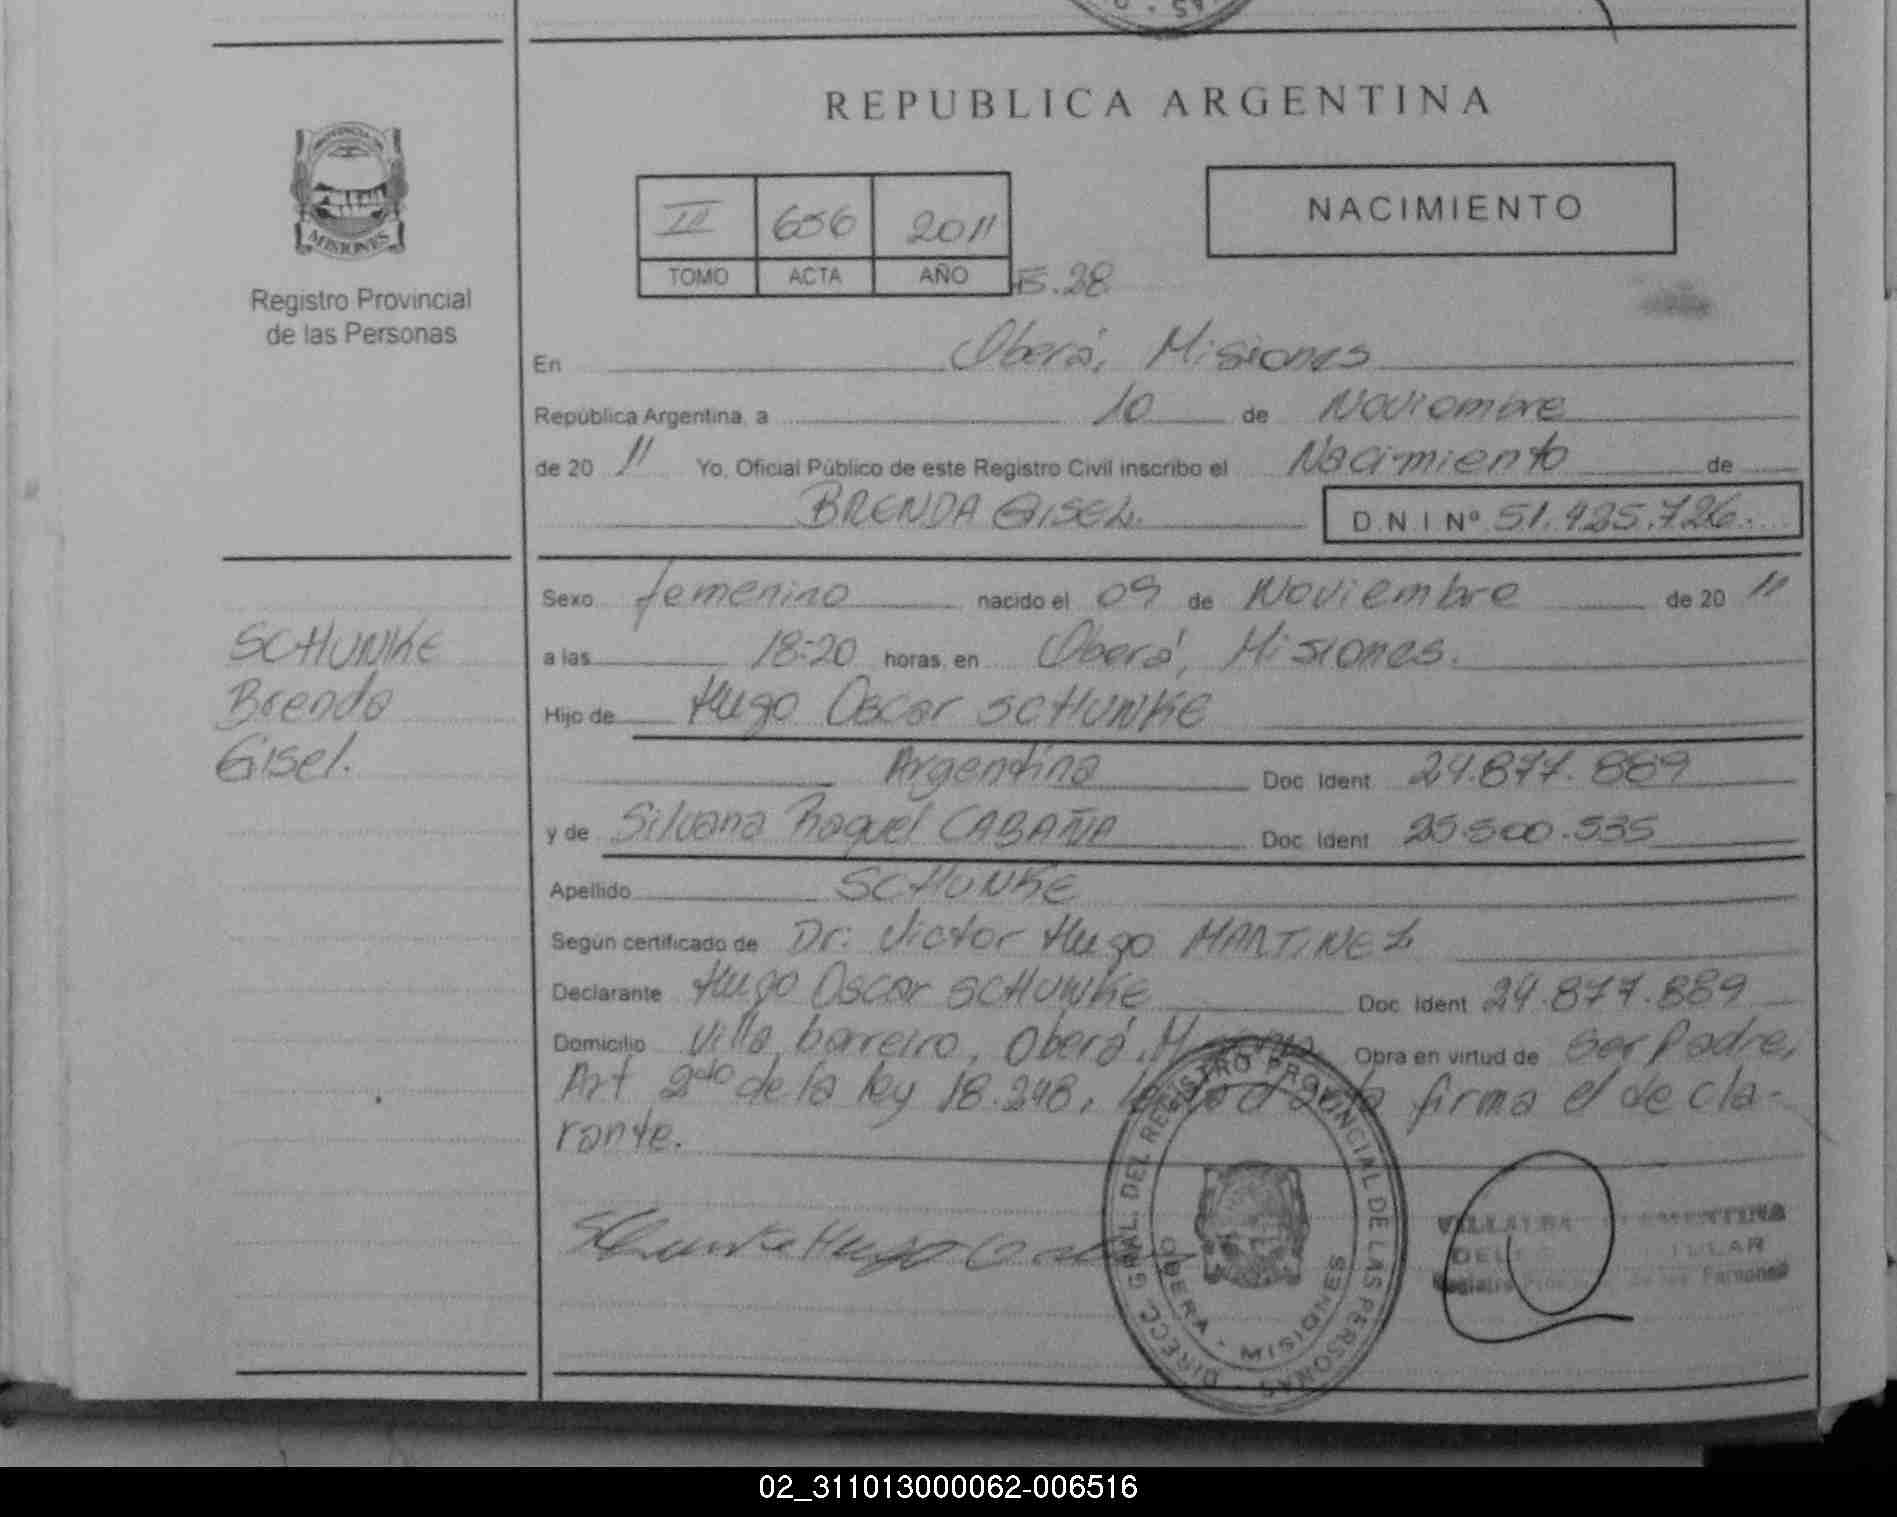 REPUBLICA ARGENTINA
PROVINCIA DE
MISIONES
Registro Provincial
de las Personas
III 656 2011
TOMO ACTA AÑO
F.28
NACIMIENTO
En Oberá, Misiones
República Argentina, a 10 de Noviembre
de 20 11 Yo, Oficial Público de este Registro Civil inscribo el Nacimiento de
BRENDA GISEL. D.N.I Nº 51.425.726.
SCHUNKE
Brenda
Gisel.
Sexo femenino nacido el 09 de Noviembre de 20 11
a las 18:20 horas, en Oberá, Misiones.
Hijo de Hugo Oscar SCHUNKE
Argentina Doc. Ident. 24.877.889
y de Silvana Raquel CABAÑA Doc. Ident. 25.500.535
Apellido SCHUNKE
Según certificado de Dr: Victor Hugo MARTINEZ
Declarante Hugo Oscar SCHUNKE Doc. Ident. 24.877.889
Domicilio Villa barreiro, Oberá, Misiones Obra en virtud de Ser Padre,
Art 2do de la ley 18.248, firma el decla-
rante.
Schunke Hugo
DIRECC. GRAL. DEL REGISTRO PROVINCIAL DE LAS PERSONAS
OBERA - MISIONES
VILLALBA CLEMENTINA
02_311013000062-006516